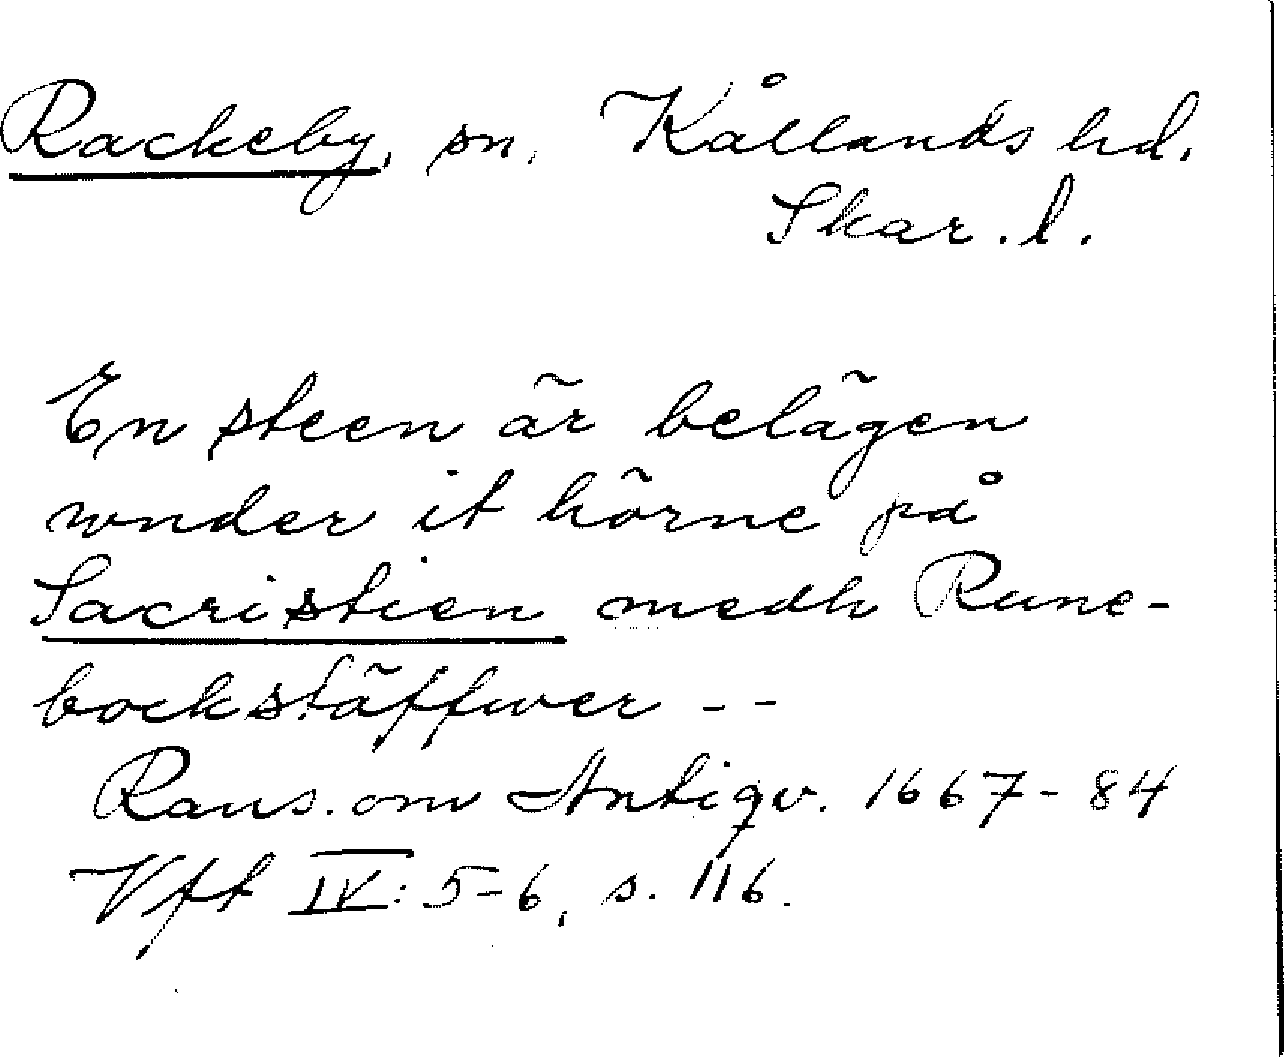 Rackeby, sn. Kållands hd.
Skar. l.
En steen är belägen
wnder it hörne på
Sacristien medh Rune-
bockstäffwer - -
Rans. om Antiqv. 1667-84
Vft IV: 5-6, s. 116.